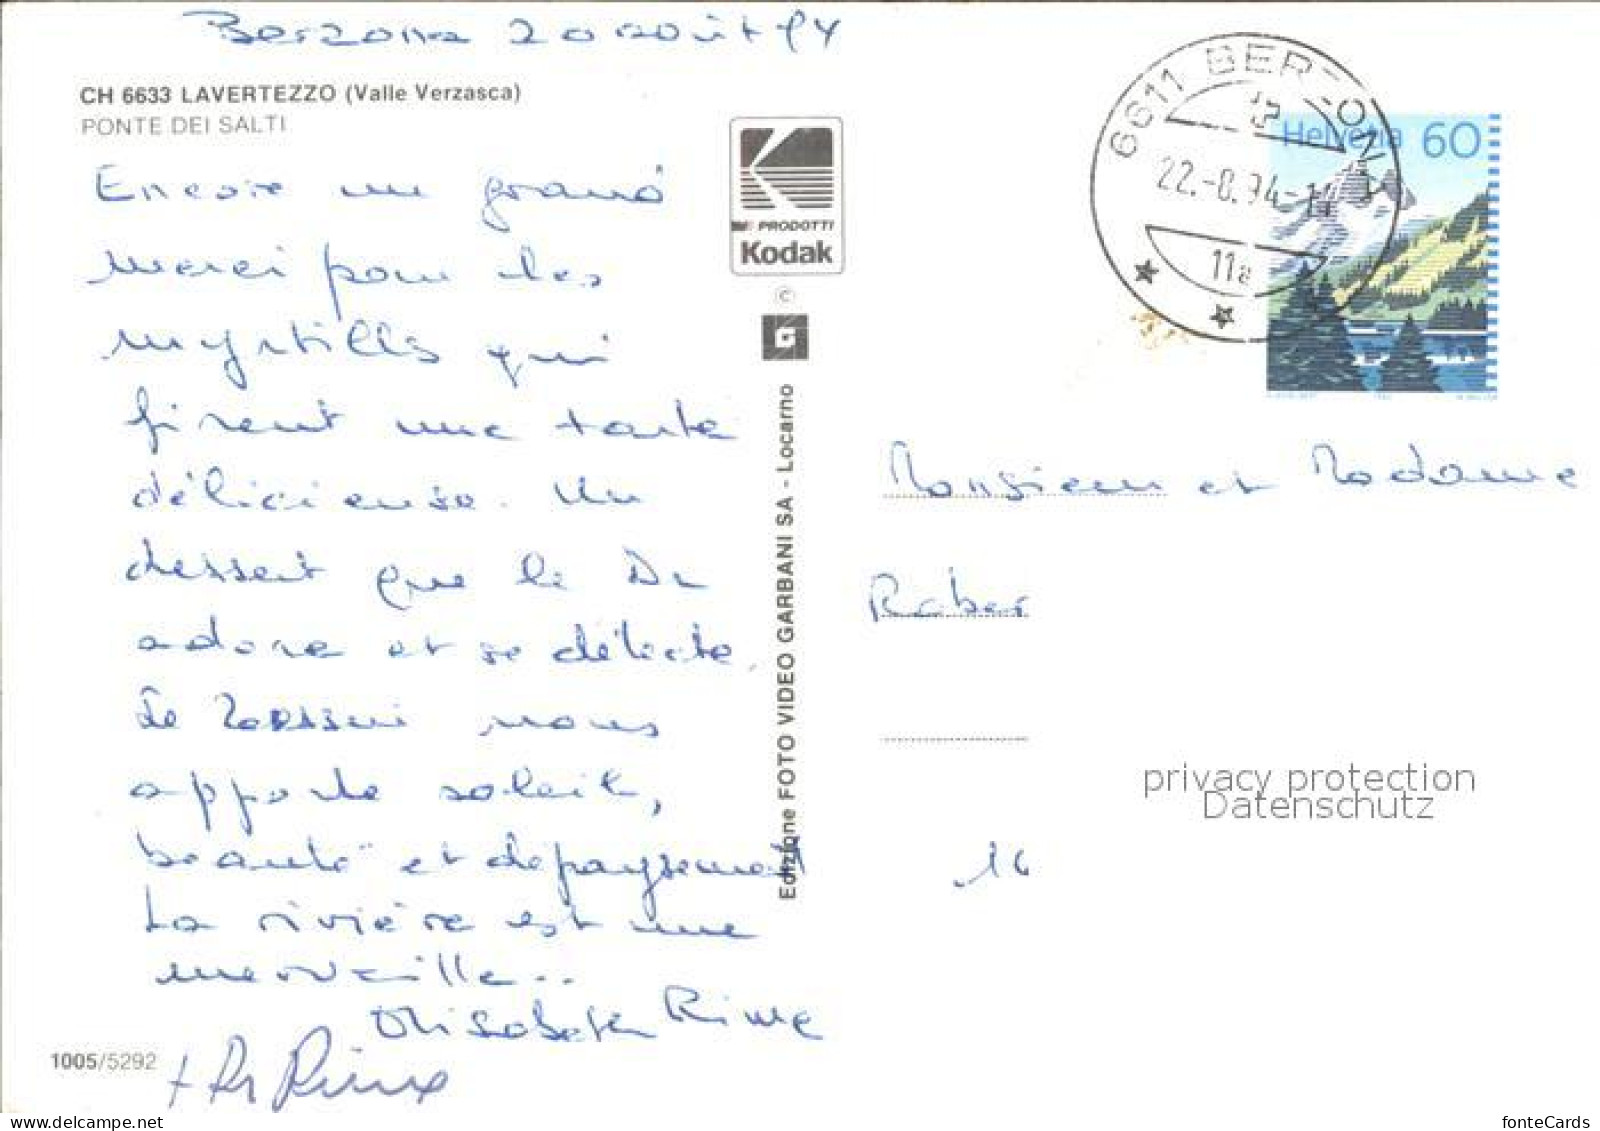 Berzona 20 août 94
CH 6633 LAVERTEZZO (Valle Verzasca)
PONTE DEI SALTI
Encore un grand
merci pour les
myrtilles qui
firent une tarte
délicieuse. Un
dessert que le Dr
adore et se délecte.
Le Tessin nous
apporte soleil,
beauté et dépaysement
La rivière est une
merveille..
Elisabeth Rime
+ Dr Rime
1005/5292
PRODOTTI
Kodak
©
Edizione FOTO VIDEO GARBANI SA - Locarno
6611 BERZONA
22.-8.94-11
11a
Helvetia 60
Monsieur et Madame
Raber
16
privacy protection
Datenschutz
fonteCards